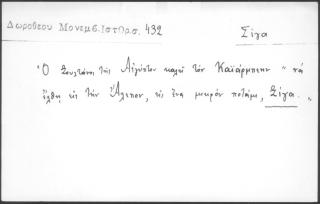 Δωροθεου Μονεμβ.Ιστορ. 432
Σίγα
Ὁ Σουλτάνος τῆς Αἰγύπτου καλεῖ τὸν Καϊάρμπεην " νά
ἔλθῃ εἰς τὴν Ἄλεπον, εἰς ἕνα μικρὸν ποτάμι, Σίγα. "